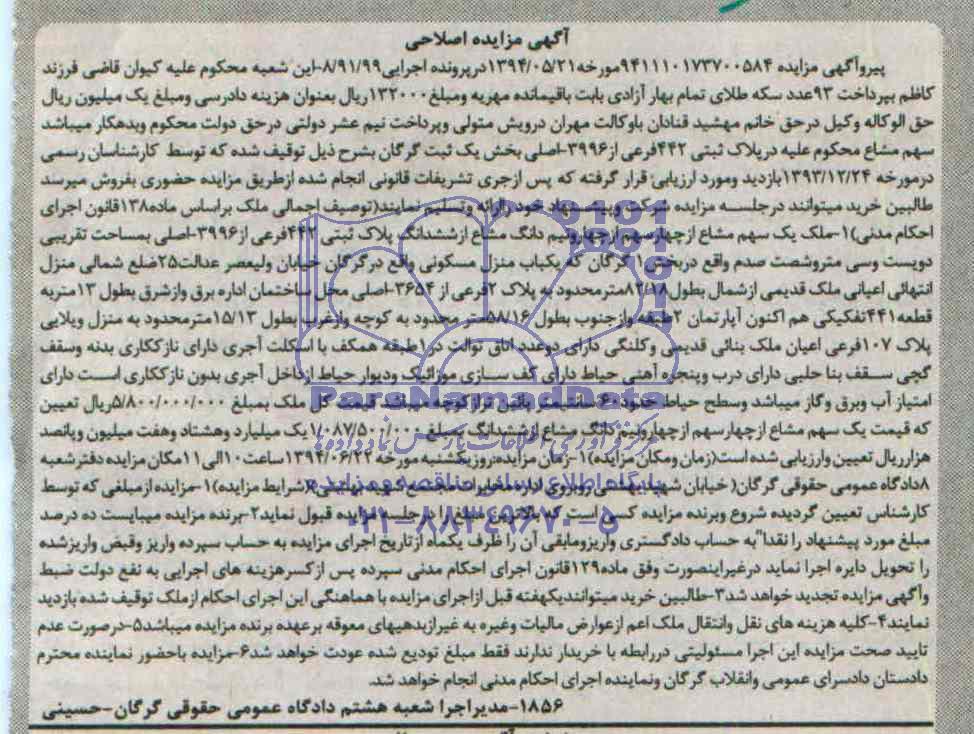 آگهی مزایده اصلاحی
پیروآگهی مزایده ۹۴۱۱۱۰۱۷۳۷۰۰۵۸۴مورخه۱۳۹۴/۰۵/۲۱درپرونده اجرایی۸/۹۱/۹۹-این شعبه محکوم علیه کیوان قاضی فرزند
کاظم بپرداخت ۹۳عدد سکه طلای تمام بهار آزادی بابت باقیمانده مهریه ومبلغ۱۳۲۰۰۰ریال بعنوان هزینه دادرسی ومبلغ یک میلیون ریال
حق الوکاله وکیل درحق خانم مهشید قنادان باوکالت مهران درویش متولی وپرداخت نیم عشر دولتی درحق دولت محکوم وبدهکار میباشد
سهم مشاع محکوم علیه درپلاک ثبتی ۴۴۲فرعی از۳۹۹۶-اصلی بخش یک ثبت گرگان بشرح ذیل توقیف شده که توسط کارشناسان رسمی
درمورخه ۱۳۹۳/۱۲/۲۴بازدید ومورد ارزیابی قرار گرفته که پس ازجری تشریفات قانونی انجام شده ازطریق مزایده حضوری بفروش میرسد
طالبین خرید میتوانند درجلسه مزایده شرکت وپیشنهاد خود راارائه وتسلیم نمایند(توصیف اجمالی ملک براساس ماده۱۳۸قانون اجرای
احکام مدنی)۱-ملک یک سهم مشاع ازچهارسهم ازچهارونیم دانگ مشاع ازششدانگ پلاک ثبتی ۴۴۲فرعی از۳۹۹۶-اصلی بمساحت تقریبی
دویست وسی متروشصت صدم واقع دربخش۱ گرگان که یکباب منزل مسکونی واقع درگرگان خیابان ولیعصر عدالت۲۵ضلع شمالی منزل
انتهائی اعیانی ملک قدیمی ازشمال بطول۸۲/۱۸مترمحدود به پلاک ۲فرعی از ۳۶۵۴-اصلی محل ساختمان اداره برق وازشرق بطول ۱۳متربه
قطعه۴۴۱تفکیکی هم اکنون آپارتمان ۲طبقه وازجنوب بطول ۵۸/۱۶متر محدود به کوچه وازغرب بطول ۱۵/۱۳مترمحدود به منزل ویلایی
پلاک ۱۰۷فرعی اعیان ملک بنائی قدیمی وکلنگی دارای دوعدد اتاق توالت در۱طبقه همکف با اسکلت آجری دارای نازککاری بدنه وسقف
گچی سقف بنا حلبی دارای درب وپنجره آهنی حیاط دارای کف سازی موزائیک ودیوار حیاط ازداخل آجری بدون نازککاری است دارای
امتیاز آب وبرق وگاز میباشد وسطح حیاط حدود۶۰سانتیمتر پائین ترازکوچه میباشد قیمت کل ملک بمبلغ ۵/۸۰۰/۰۰۰/۰۰۰ریال تعیین
که قیمت یک سهم مشاع ازچهارسهم ازچهارونیم دانگ مشاع ازششدانگ بمبلغ ۱/۰۸۷/۵۰۰/۰۰۰یک میلیارد وهشتاد وهفت میلیون وپانصد
هزارریال تعیین وارزیابی شده است(زمان ومکان مزایده)۱-زمان مزایده:روزیکشنبه مورخه ۱۳۹۴/۰۶/۲۲ساعت۱۰الی۱۱مکان مزایده دفترشعبه
۸دادگاه عمومی حقوقی گرگان( خیابان شهیدبهشتی روبروی اداره مخابرات مجتمع شهیدبهشتی)(شرایط مزایده)۱-مزایده ازمبلغی که توسط
کارشناس تعیین گردیده شروع وبرنده مزایده کسی است که بالاترین مبلغ را درجلسه مزایده قبول نماید۲-برنده مزایده میبایست ده درصد
مبلغ مورد پیشنهاد را نقدا"به حساب دادگستری واریزومابقی آن را ظرف یکماه ازتاریخ اجرای مزایده به حساب سپرده واریز وقبض واریزشده
را تحویل دایره اجرا نماید درغیراینصورت وفق ماده۱۲۹قانون اجرای احکام مدنی سپرده پس ازکسرهزینه های اجرایی به نفع دولت ضبط
وآگهی مزایده تجدید خواهد شد۳-طالبین خرید میتوانندیکهفته قبل ازاجرای مزایده با هماهنگی این اجرای احکام ازملک توقیف شده بازدید
نمایند۴-کلیه هزینه های نقل وانتقال ملک اعم ازعوارض مالیات وغیره به غیرازبدهیهای معوقه برعهده برنده مزایده میباشد۵-درصورت عدم
تایید صحت مزایده این اجرا مسئولیتی دررابطه با خریدار ندارند فقط مبلغ تودیع شده عودت خواهد شد۶-مزایده باحضور نماینده محترم
دادستان دادسرای عمومی وانقلاب گرگان ونماینده اجرای احکام مدنی انجام خواهد شد.
۱۸۵۶-مدیراجرا شعبه هشتم دادگاه عمومی حقوقی گرگان-حسینی
ParsNamadData
پایگاه اطلاع رسانی مناقصه و مزایده
۰۲۱-۸۸۳۴۹۶۷۰-۵